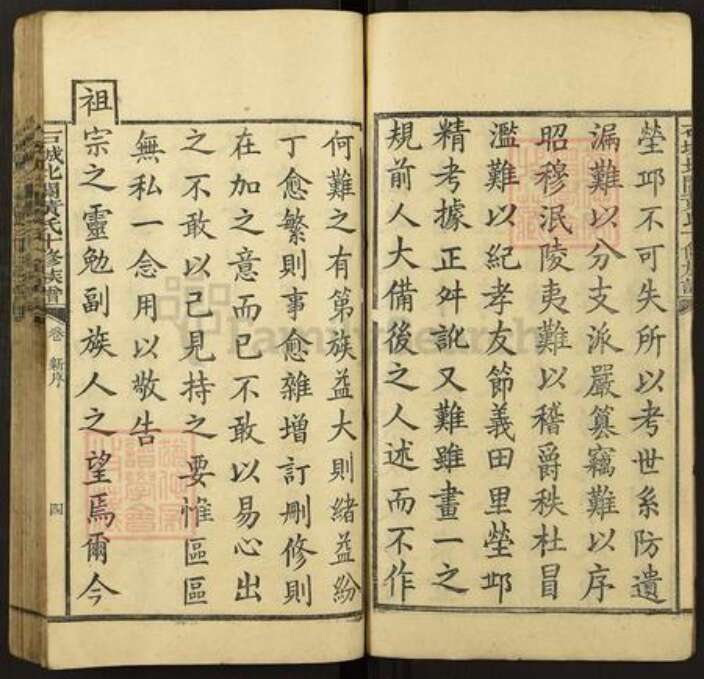 塋邶不可失所以考世系防遺
漏難以分支派嚴簒竊難以序
昭穆泯陵夷難以稽爵秩杜冒
濫難以紀孝友節義田里塋邶
精考據正舛訛又難雖畫一之
規前人大備後之人述而不作
何難之有第族益大則緒益紛
丁愈繁則事愈雜增訂刪修則
在加之意而已不敢以易心出
之不敢以己見持之要惟區區
無私一念用以敬告
祖
宗之靈勉副族人之望焉爾今
石城北關黃氏十修族譜
卷 新序
四
FamilySearch